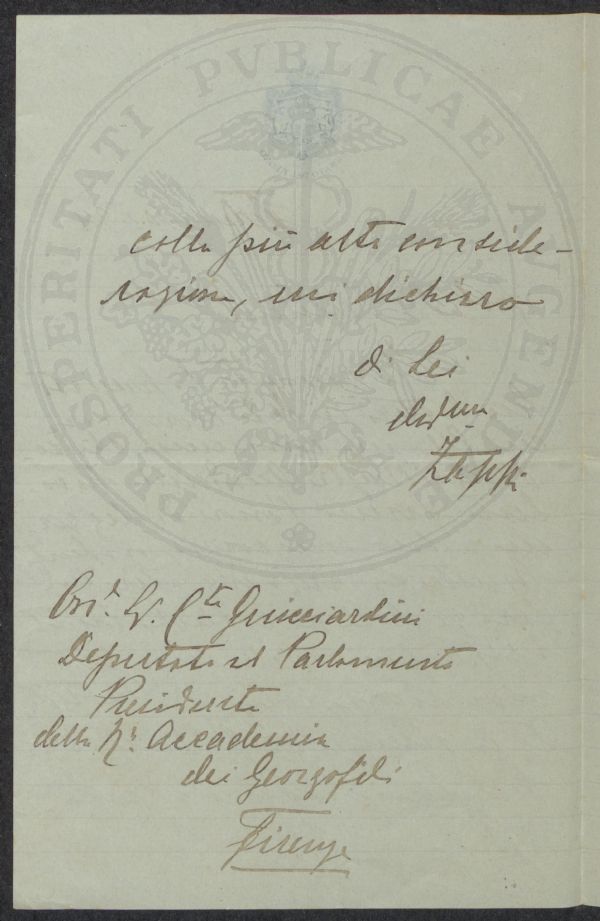 PROSPERITATI PVBLICAE AVGENDAE
colla più alta conside-
razione, mi dichiaro
di Lei
Zappi
Sr. Cte Guicciardini
Deputato al Parlamento
Presidente
della R. Accademia
dei Georgofili
Firenze